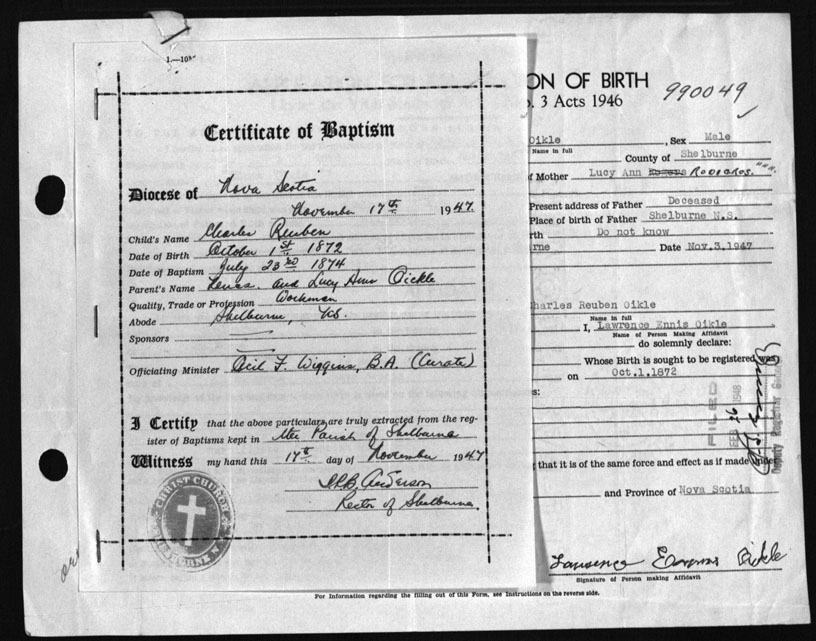 Certificate of Baptism
Diocese of Nova Scotia
November 17th 1947.
Child's Name Charles Reuben
Date of Birth October 1st 1872
Date of Baptism July 23rd 1874
Parent's Name and Lucy Ann Oickle
Quality, Trade or Profession Workman
Abode Shelburne, N.S.
Sponsors
Officiating Minister Cecil F. Wiggins, B.A. (Curate)
I Certify that the above particulars are truly extracted from the reg-
ister of Baptisms kept in the Parish of Shelburne
Witness my hand this 17th day of November 1947
Anderson
Rector of Shelburne.
CHRIST CHURCH
SHELBURNE N.S.
ON OF BIRTH
3 Acts 1946
990049
Oikle, Sex Male
Name in full
County of Shelburne
of Mother Lucy Ann
Present address of Father Deceased
Place of birth of Father Shelburne N.S.
rth Do not know
rne Date Nov.3,1947
Charles Reuben Oikle
Name in full
I, Lawrence Ennis Oikle
Name of Person Making Affidavit
do solemnly declare:
Whose Birth is sought to be registered was
on Oct.1,1872
s:
FILED
FEB 1948
Deputy Registrar General
that it is of the same force and effect as if made under
and Province of Nova Scotia
Lawrence Ennis Oikle
Signature of Person making Affidavit
For Information regarding the filling out of this Form, see Instructions on the reverse side.